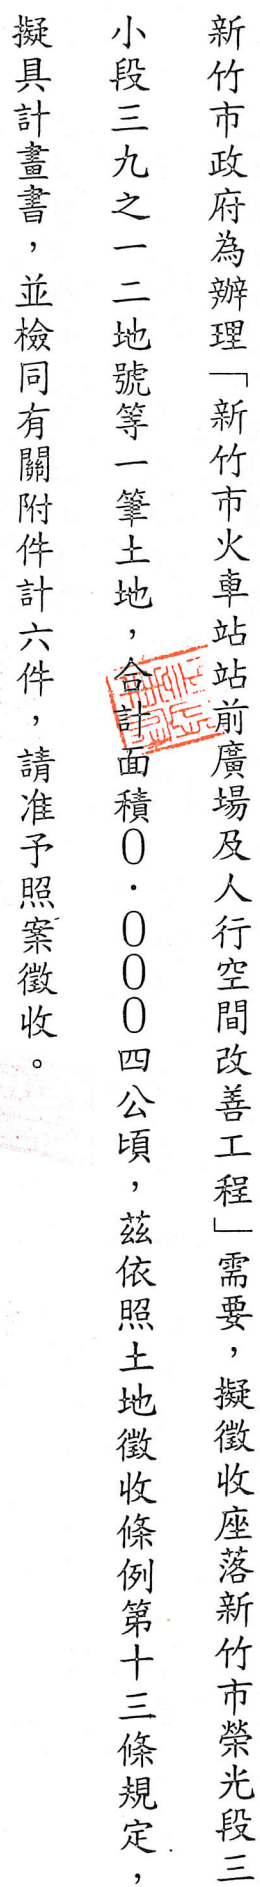 新竹市政府為辦理「新竹市火車站站前廣場及人行空間改善工程」需要，擬徵收座落新竹市榮光段三
小段三九之一二地號等一筆土地，合計面積０．０００四公頃，茲依照土地徵收條例第十三條規定，
擬具計畫書，並檢同有關附件計六件，請准予照案徵收。